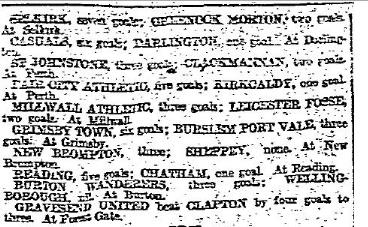 SELKIRK, seven goals; GREENOCK MORTON, two goals.
At Selkirk.
CASUALS, six goals; DARLINGTON, one goal. At Darling-
ton.
ST JOHNSTONE, three goals; CLACKMANNAN, two goals.
At Perth.
FAIR CITY ATHLETIC, five goals; KIRKCALDY, one goal.
At Perth.
MILLWALL ATHLETIC, three goals; LEICESTER FOSSE,
two goals. At Millwall.
GRIMSBY TOWN, six goals; BURSLEM PORT VALE, three
goals. At Grimsby.
NEW BROMPTON, three; SHEPPEY, none. At New
Brompton.
READING, five goals; CHATHAM, one goal. At Reading.
BURTON WANDERERS, three goals; WELLING-
BOROUGH, nil. At Burton.
GRAVESEND UNITED beat CLAPTON by four goals to
three. At Forest Gate.